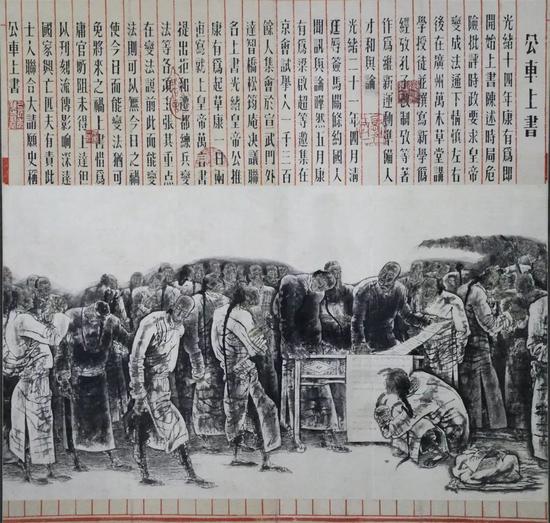 公車上書
光緒十四年康有為即
開始上書陳述時局危
險批評時政要求皇帝
變成法通下情慎左右
後在廣州萬木草堂講
學授徒並撰寫新學偽
經攷孔子改制攷等著
作為維新運動準備人
才和輿論
光緒二十一年四月清
廷辱簽馬關條約國人
聞訊輿論嘩然五月康
有為梁啟超等邀集在
京會試學人一千三百
餘人集會於宣武門外
達智橋松筠庵決議聯
名上書光緒皇帝公推
康有為起草康一日兩
夜寫就上皇帝萬言書
提出拒和遷都練兵變
法等各項主張其重點
在變法謂前此而能變
法則可以無今日之禍
使今日而能變法猶可
免將來之禍上書惜為
庸官所阻未得上達但
以刊刻流傳影響深遠
國家興亡匹夫有責此
士人聯合大請願史稱
公車上書